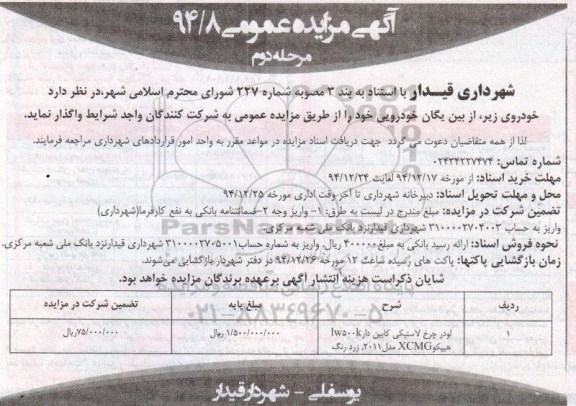 آگهی مزایده عمومی ۹۴/۸
مرحله دوم
شهرداری قیدار با استناد به بند ۳ مصوبه شماره ۲۲۷ شورای محترم اسلامی شهر،در نظر دارد
خودروی زیر، از بین یگان خودرویی خود را از طریق مزایده عمومی به شرکت کنندگان واجد شرایط واگذار نماید.
لذا از همه متقاضیان دعوت می گردد جهت دریافت اسناد مزایده در مواعد مقرر به واحد امور قراردادهای شهرداری مراجعه فرمایند.
شماره تماس: ۰۲۴۳۴۲۲۷۴۷۴
مهلت خرید اسناد: از مورخه ۹۴/۱۲/۱۷ لغایت ۹۴/۱۲/۲۴
محل و مهلت تحویل اسناد: دبیرخانه شهرداری تا آخر وقت اداری مورخه ۹۴/۱۲/۲۵
تضمین شرکت در مزایده: مبلغ مندرج در لیست به طرق: ۱- واریز وجه ۲-ضمانتنامه بانکی به نفع کارفرما(شهرداری)
واریز به حساب ۳۱۰۰۰۰۲۷۰۴۰۰۳ شهرداری قیدارنزد بانک ملی شعبه مرکزی.
نحوه فروش اسناد: ارائه رسید بانکی به مبلغ ۴۰۰۰۰۰ ریال، واریز به شماره حساب۳۱۰۰۰۰۲۷۰۵۰۰۱ شهرداری قیدارنزد بانک ملی شعبه مرکزی.
زمان بازگشایی پاکتها: پاکت های رسیده ساعت ۱۲ مورخه ۹۴/۱۲/۲۶ در دفتر شهردار بازگشایی می‌شوند.
شایان ذکراست هزینه انتشار آگهی برعهده برندگان مزایده خواهد بود.
ردیف شرح مبلغ پایه تضمین شرکت در مزایده
۱ لودر چرخ لاستیکی کابین دار lw۵۰۰k ۱/۵۰۰/۰۰۰/۰۰۰ ریال ۷۵/۰۰۰/۰۰۰ریال
هپیکو XCMG مدل۲۰۱۱، زرد رنگ
یوسفلی - شهردار قیدار
ParsNa
۰۲۱-۸۸۳۴۹۶۷۰-۵